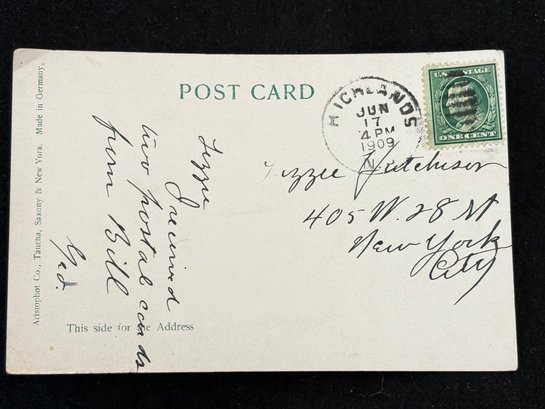 POST CARD
Aristophot Co., Taucha, Saxony & New York. Made in Germany.
This side for the Address
HIGHLANDS
JUN
17
4 PM
1909
N.
U.S. POSTAGE
ONE CENT
Lizzie
I received
two postal cards
from Bill
Lizzie
405 W. 28 St
New York
City